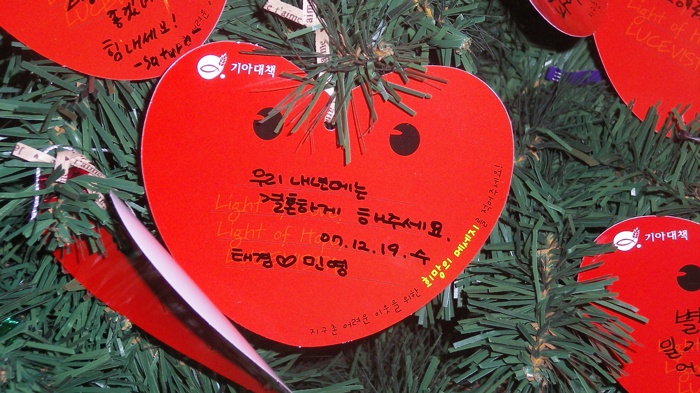 좋겠어
힘내세요!
LUCEVIS
t'aime
기아대책
우리 내년에는
결혼하게 해주세요.
07.12.19.수
태경♡민영
Light of H
지구촌 어려운 이웃을 위한 희망의 메세지를 적어주세요!
Light of
LUCEVIST
기아대책
별
일기
어